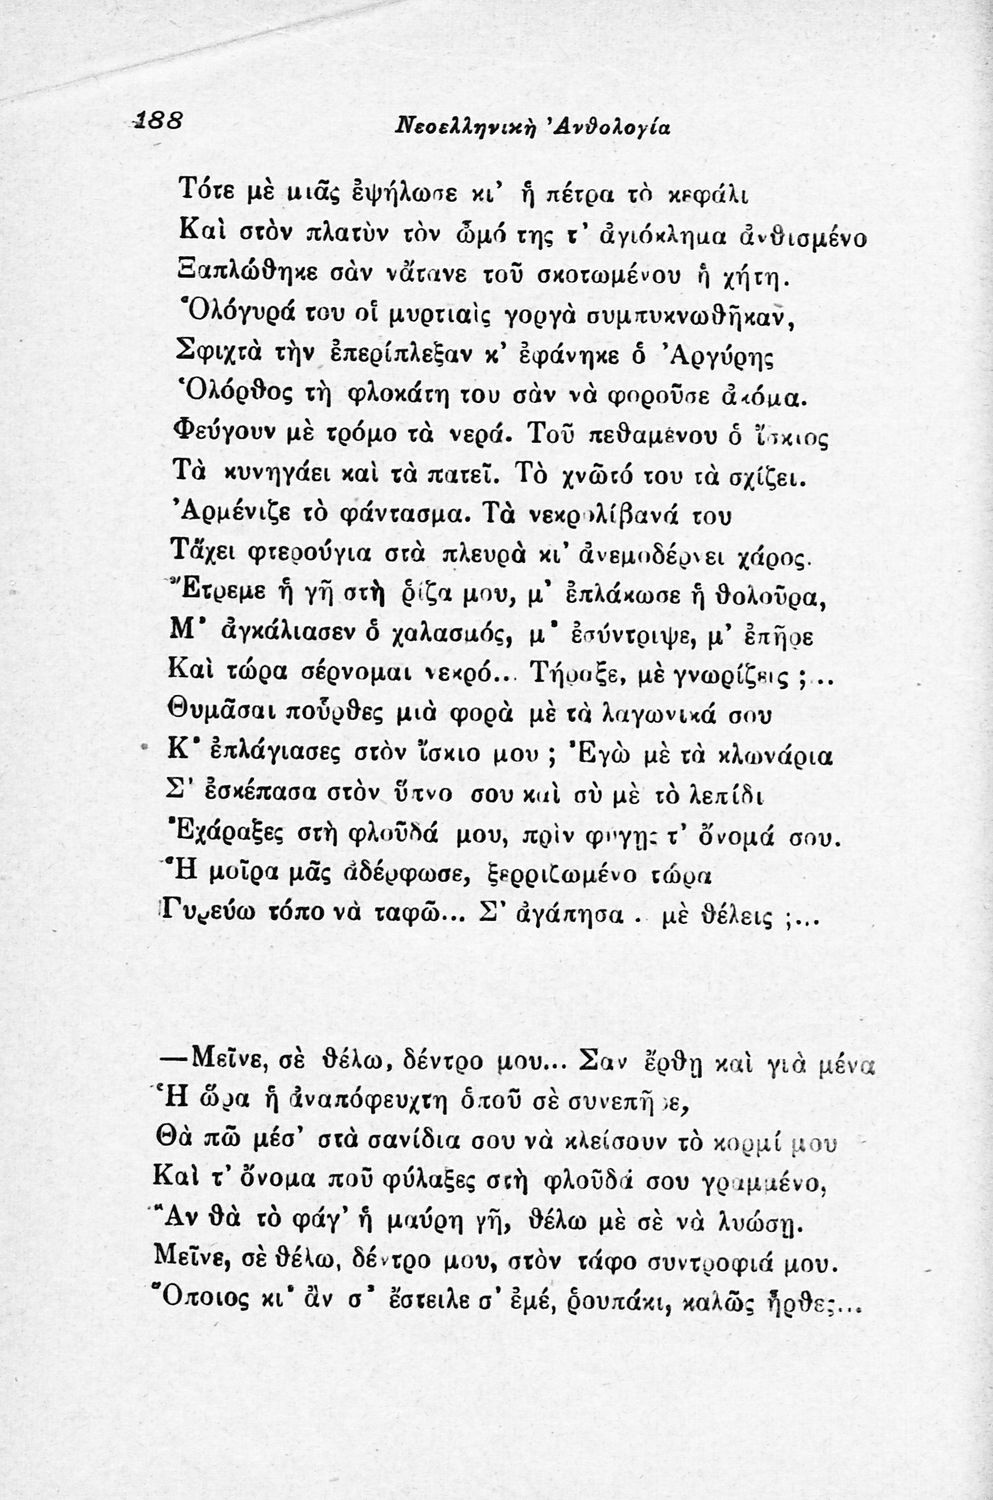 188 Νεοελληνικὴ Ἀνθολογία
Τότε μὲ μιᾶς ἐψήλωσε κι’ ἡ πέτρα τὸ κεφάλι
Καὶ στὸν πλατὺν τὸν ὦμό της τ’ ἁγιόκλημα ἀνθισμένο
Ξαπλώθηκε σὰν νἄτανε τοῦ σκοτωμένου ἡ χήτη.
Ὁλόγυρά του οἱ μυρτιαὶς γοργὰ συμπυκνωθῆκαν,
Σφιχτὰ τὴν ἐπερίπλεξαν κ’ ἐφάνηκε ὁ Ἀργύρης
Ὁλόρθος τὴ φλοκάτη του σὰν νὰ φοροῦσε ἀκόμα.
Φεύγουν μὲ τρόμο τὰ νερά. Τοῦ πεθαμένου ὁ ἴσκιος
Τὰ κυνηγάει καὶ τὰ πατεῖ. Τὸ χνῶτό του τὰ σχίζει.
Ἀρμένιζε τὸ φάντασμα. Τὰ νεκρολίβανά του
Τἄχει φτερούγια στὰ πλευρὰ κι’ ἀνεμοδέρνει χάρος.
Ἔτρεμε ἡ γῆ στὴ ῥίζα μου, μ’ ἐπλάκωσε ἡ θολοῦρα,
Μ’ ἀγκάλιασεν ὁ χαλασμός, μ’ ἐσύντριψε, μ’ ἐπῆρε
Καὶ τώρα σέρνομαι νεκρό... Τήραξε, μὲ γνωρίζεις ;...
Θυμᾶσαι ποὖρθες μιὰ φορὰ μὲ τὰ λαγωνικά σου
Κ’ ἐπλάγιασες στὸν ἴσκιο μου ; Ἐγὼ μὲ τὰ κλωνάρια
Σ’ ἐσκέπασα στὸν ὕπνο σου καὶ σὺ μὲ τὸ λεπίδι
Ἐχάραξες στὴ φλοῦδά μου, πρὶν φύγῃς τ’ ὄνομά σου.
Ἡ μοῖρα μᾶς ἀδέρφωσε, ξερριζωμένο τώρα
Γυρεύω τόπο νὰ ταφῶ... Σ’ ἀγάπησα . μὲ θέλεις ;...
—Μεῖνε, σὲ θέλω, δέντρο μου... Σαν ἔρθῃ καὶ γιὰ μένα
Ἡ ὥρα ἡ ἀναπόφευχτη ὁποῦ σὲ συνεπῆρε,
Θὰ πῶ μέσ’ στὰ σανίδια σου νὰ κλείσουν τὸ κορμί μου
Καὶ τ’ ὄνομα ποῦ φύλαξες στὴ φλοῦδά σου γραμμένο,
Ἂν θὰ τὸ φάγ’ ἡ μαύρη γῆ, θέλω μὲ σὲ νὰ λυώσῃ.
Μεῖνε, σὲ θέλω, δέντρο μου, στὸν τάφο συντροφιά μου.
Ὅποιος κι’ ἂν σ’ ἔστειλε σ’ ἐμέ, ῥουπάκι, καλῶς ἦρθες...